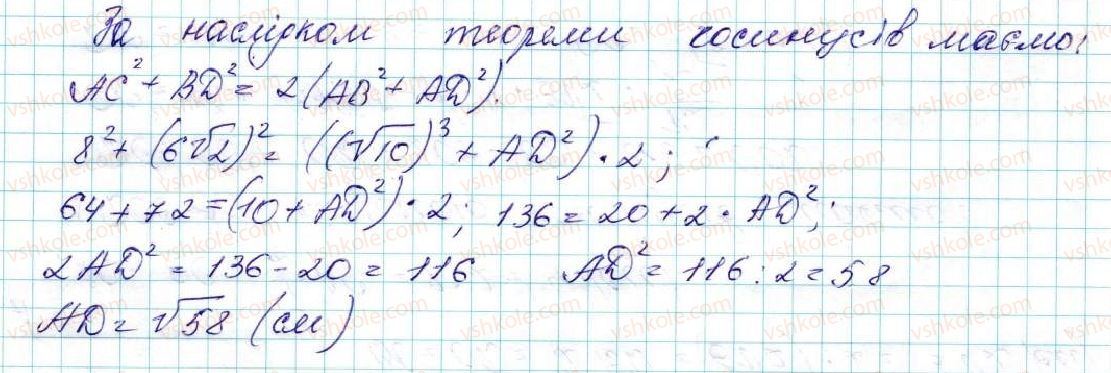 За наслідком теореми косинусів маємо:
AC² + BD² = 2(AB² + AD²).
8² + (6√2)² = ((√10)³ + AD²) · 2;
64 + 72 = (10 + AD²) · 2; 136 = 20 + 2 · AD²;
2AD² = 136 - 20 = 116 AD² = 116 : 2 = 58
AD = √58 (см)